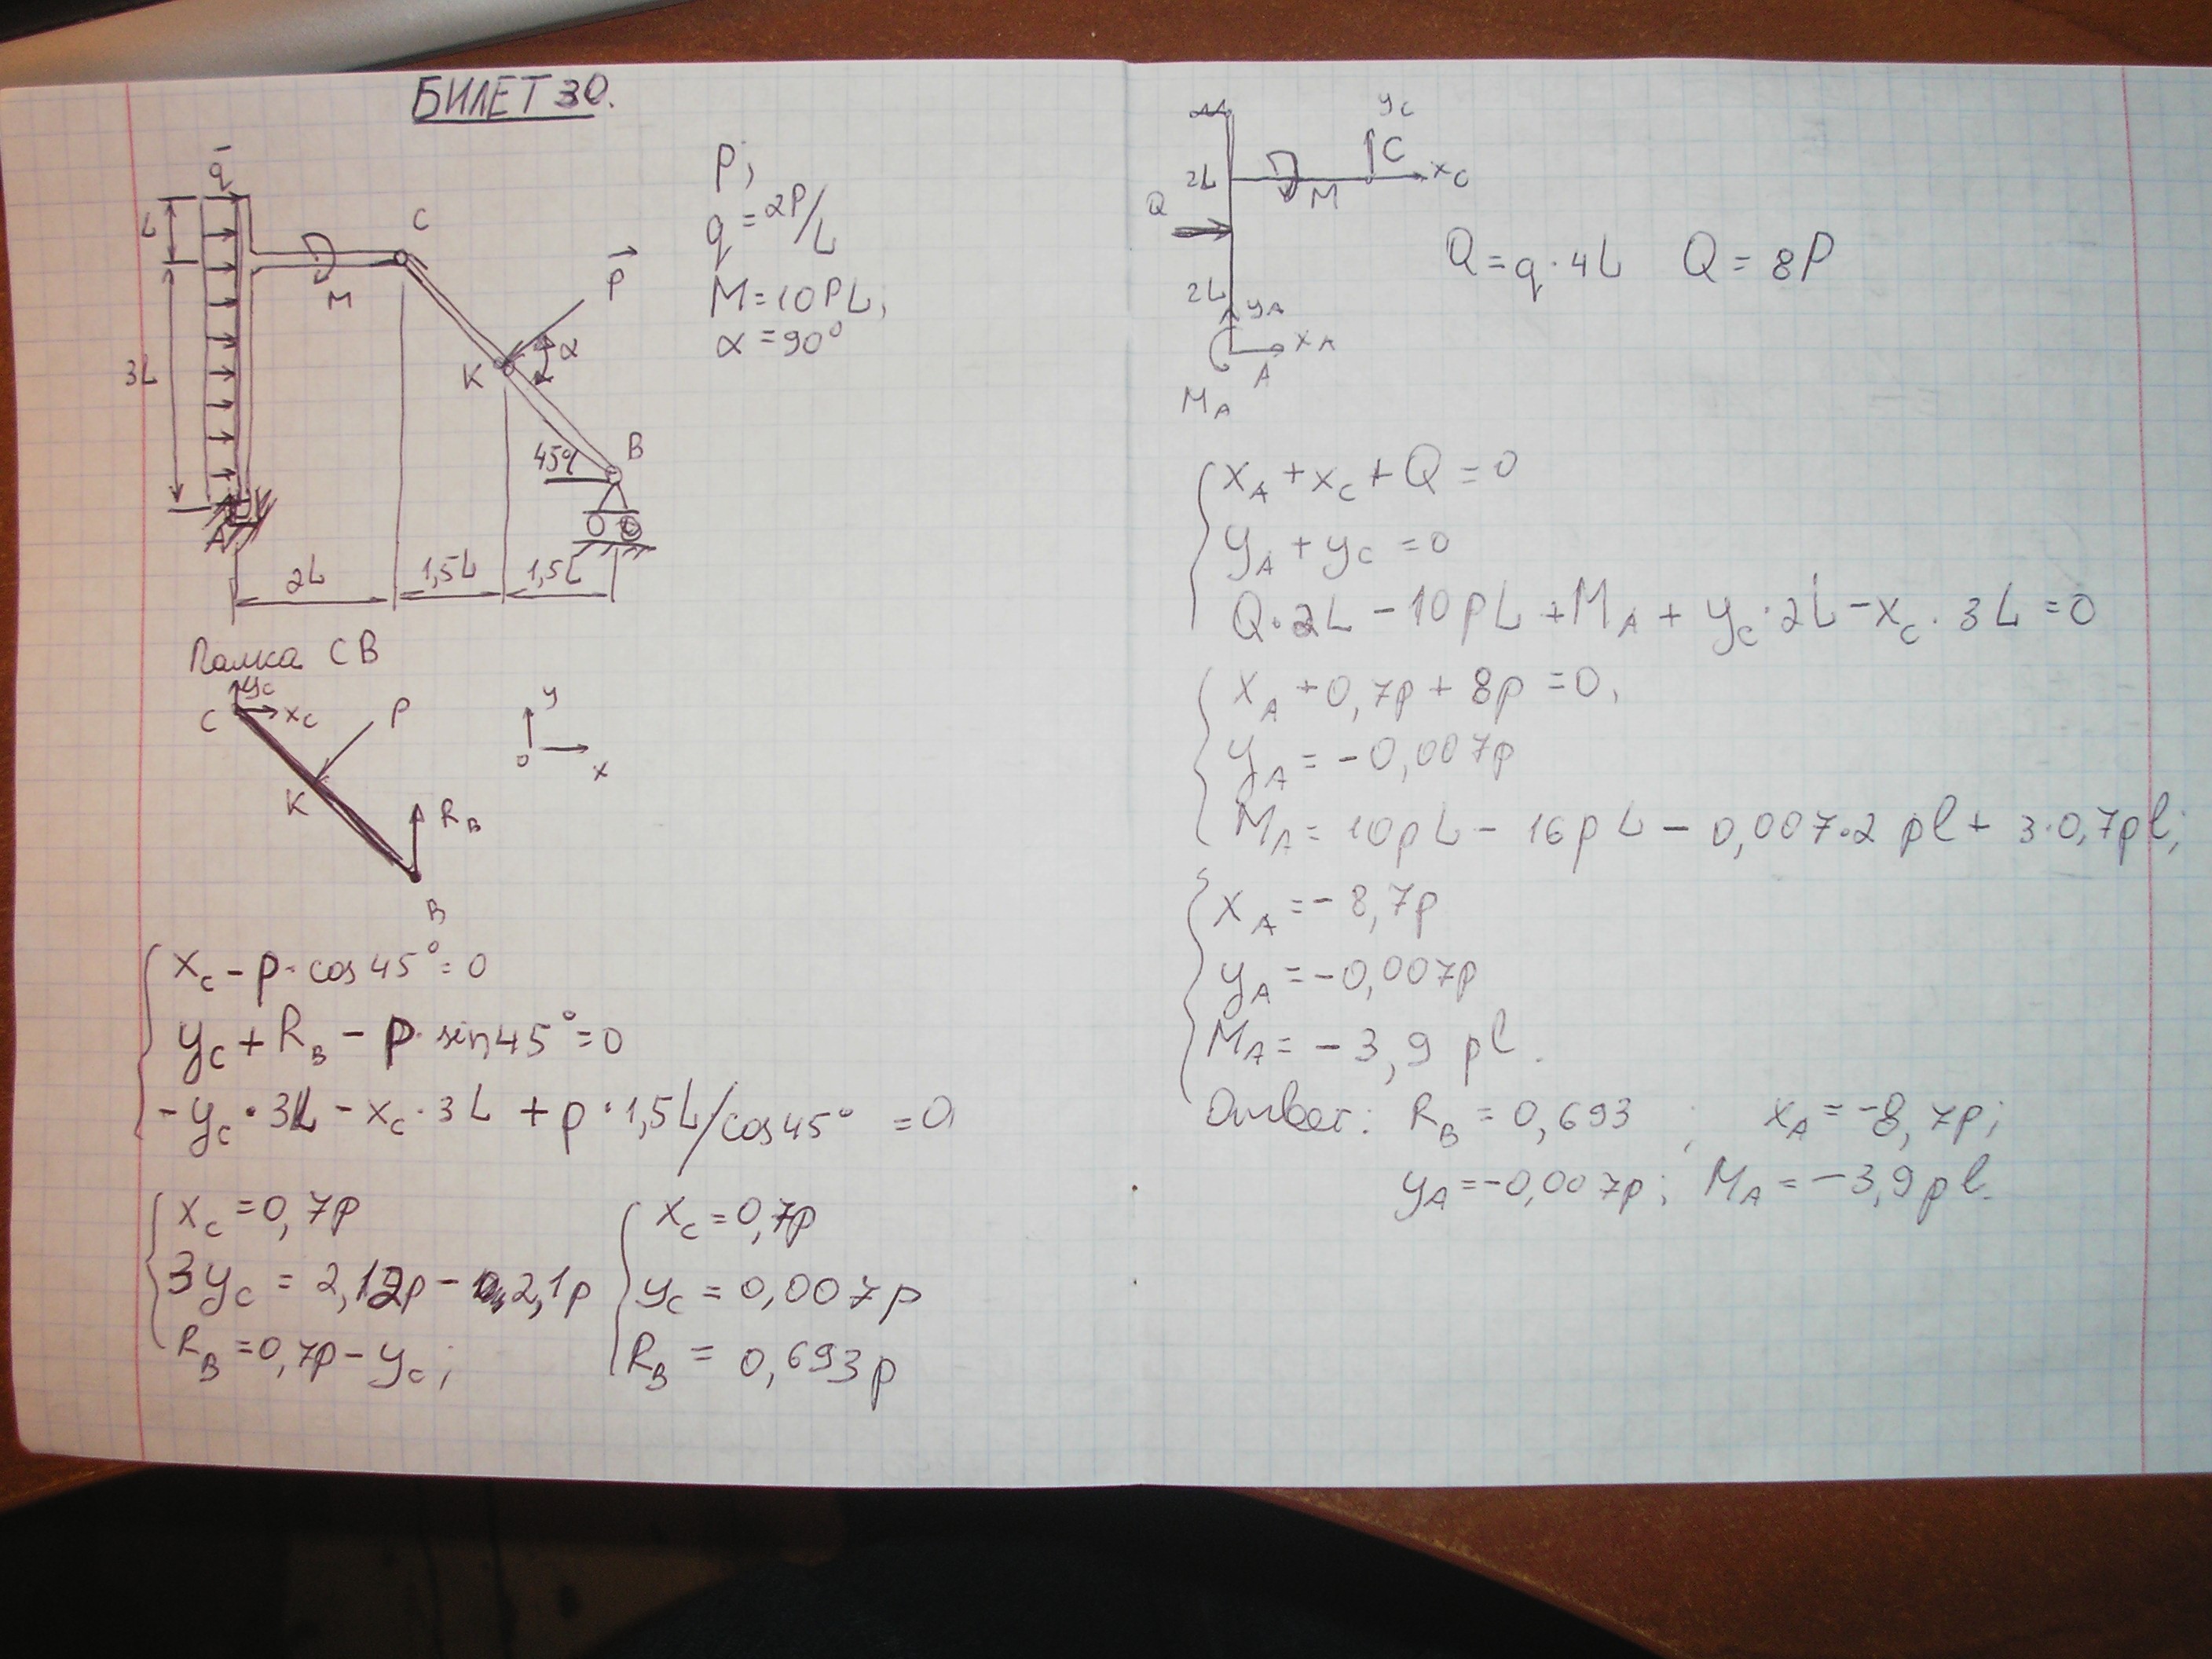 БИЛЕТ 30.
q
L
3L
M
C
P
K
α
45°
B
A
2L
1,5L
1,5L
P;
q = 2P/L
M = 10PL;
α = 90°
Палка CB
yc
C
xc
P
K
RB
B
y
o
x
xc - p · cos 45° = 0
yc + RB - p · sin 45° = 0
- yc · 3L - xc · 3L + p · 1,5L/cos 45° = 0
xc = 0,7p
3yc = 2,12p - 2,1p
RB = 0,7p - yc;
xc = 0,7p
yc = 0,007p
RB = 0,693p
yc
C
xc
2L
M
Q
2L
yA
xA
A
MA
Q = q · 4L Q = 8P
xA + xc + Q = 0
yA + yc = 0
Q · 2L - 10pL + MA + yc · 2L - xc · 3L = 0
xA + 0,7p + 8p = 0,
yA = - 0,007p
MA = 10pL - 16pL - 0,007·2 pl + 3·0,7pl;
xA = - 8,7p
yA = - 0,007p
MA = - 3,9 pl.
Ответ: RB = 0,693 ; xA = -8,7p;
yA = -0,007p; MA = -3,9pl.